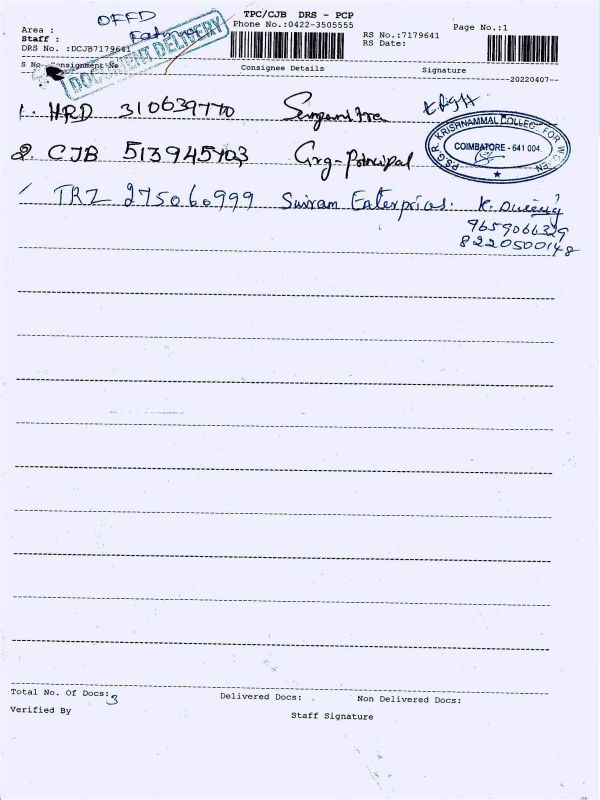 OFFD
TPC/CJB DRS - PCP
Area :
Phone No.:0422-3505555
Page No.:1
Staff :
RS No.:7179641
DRS No. :DCJB7179641
RS Date:
DOCUMENT DELIVERY
S No Consignment No
Consignee Details
Signature
--20220407--
1. HRD 310639770
P.S.G.R. KRISHNAMMAL COLLEGE FOR WOMEN
COIMBATORE - 641 004.
2. CJB 513945703 Grg-Principal
TRZ 275060999 Enterprices. K.
9659066329
8220500148
Total No. Of Docs: 3
Delivered Docs:
Non Delivered Docs:
Verified By
Staff Signature